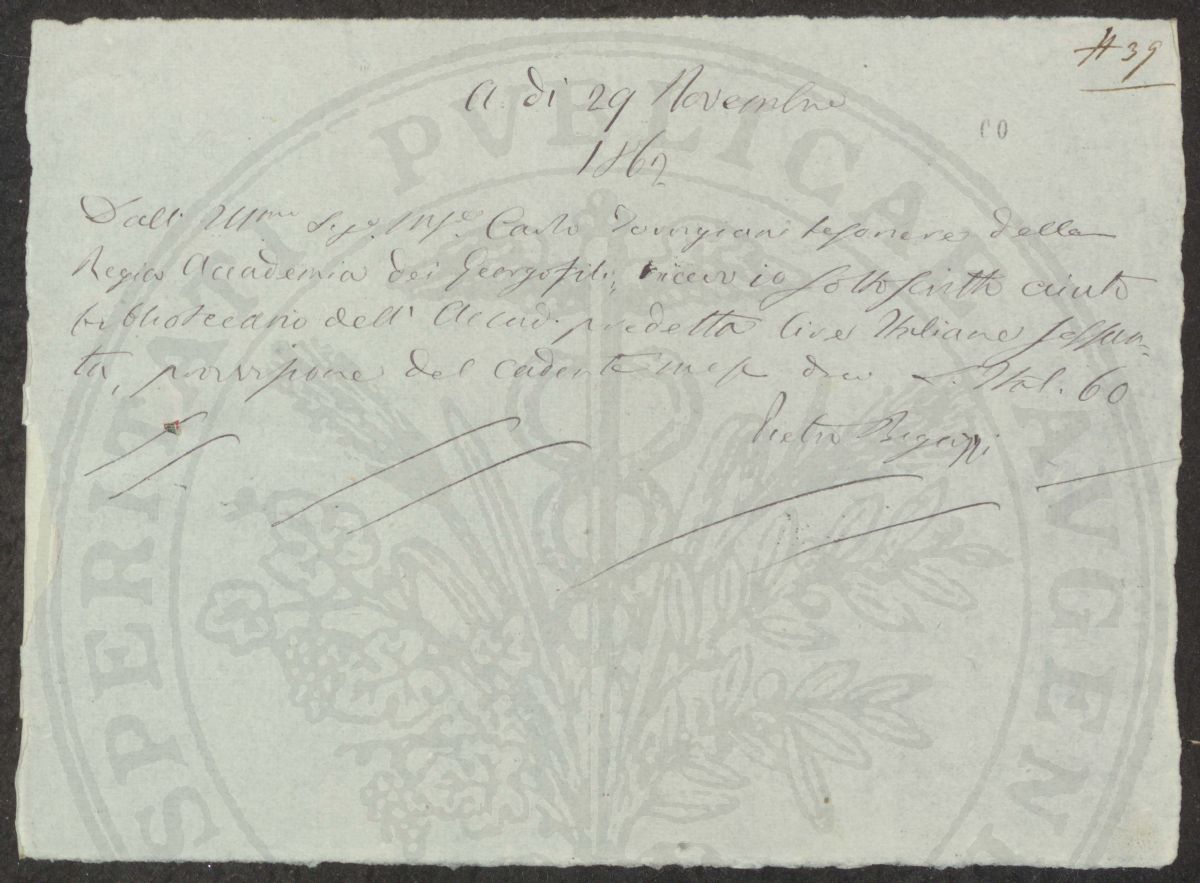 # 39
A dì 29 Novembre
60
1862
Dall' Illmo Sigr. Mse. Carlo Torrigiani tesoriere della
Regia Accademia dei Georgofili, ricevo io sottoscritto aiuto
bibliotecario dell' Accad. predetta lire Italiane sessan-
ta, provvisione del cadente mese dico L. Ital. 60
Pietro Bigazzi
PROSPERITATI PVBLICAE AVGENDAE